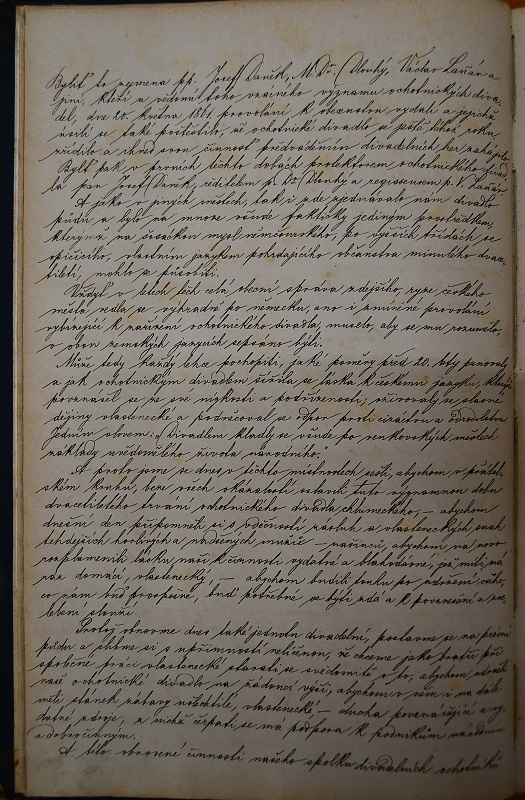 Byliť to zejmena pp. Josef Daněk, M. Dr. Dlouhý, Václav Laňár a
jiní, kteří u vědomí toho vzácného významu ochotnických diva-
del, dne 20. května 1861 provolání k obecenstvu vydali a jejichž
úsilí se také poštěstilo, že ochotnické divadlo se ještě téhož roku
zřídilo a ihned svou činnost předváděním divadelních her zahájilo.
Bylť pak v prvních těchto dobách protektorem ochotnického divad-
la pan Josef Daněk, ředitelem p. Dr. Dlouhý a regisseurem p. V. Laňár.
A jako v jiných městech, tak i zde zjednávalo nám divadlo
půdu a bylo na mnoze všude fakticky jediným prostředkem,
kterýmž na širokou mysl němčinou, po vyšších třídách se
opičícího, vlastním jazykem pohrdajícího občanstva minulého dvace-
tiletí, mohlo se působiti.
Vždyť v letech těch celá obecní správa zdejšího, ryze českého
města vedla se výhradně po německu, ano i zmíněné provolání
vybízející k zařízení ochotnického divadla, muselo, aby se mu rozumělo,
v obou zemských jazycích sepsáno býti.
Může tedy každý lehce pochopiti, jaké poměry před 20. lety panovaly
a jak ochotnickým divadlem šířila se láska k českému jazyku, kterýž
povznášel se ze své nízkosti a potřísenosti; oživovaly se slavné
dějiny vlastenecké a podněcoval se odpor proti cizáctvu a
Jedním slovem: „Divadlem kladly se všude po venkovských městech
základy uvědomělého života národního."
A proto jsme se dnes v těchto místnostech sešli, abychom v přátel-
ském kruhu, beze všech okázalostí oslavili tuto významnou dobu
dvacetiletého trvání ochotnického divadla chlumeckého, — abychom
dnešní den připomněli si s vděčností zásluh a vlasteneckých snah
tehdejších horlivých a nadšených mužů — našinců, abychom na novo
rozplamenili lásku naši k činnosti vydatné a blahodárné, jež míti má
ráz domácí, vlastenecký, — abychom budili touhu po zdaření všeho,
co nám buď prospěšné, buď potřebné se býti zdá a k povznesení a zve-
lebení slouží.
Protož obnovme dnes také jednotu divadelní, postavme se na právní
půdu a slibme si s upřímností neličenou, že chceme jako bratři při
společné práci vlastenecké starati se svědomitě o to, abychom
naše ochotnické divadlo na žádoucí výši, abychom v něm i na dále
měli stánek zábavy ušlechtilé, vlastenecké — ducha povznášející a vy-
datné zdroje, z nichž čerpati se má podpora k podnikům národním
a dobročinným.
A této obnovené činnosti našeho spolku divadelních ochotníků